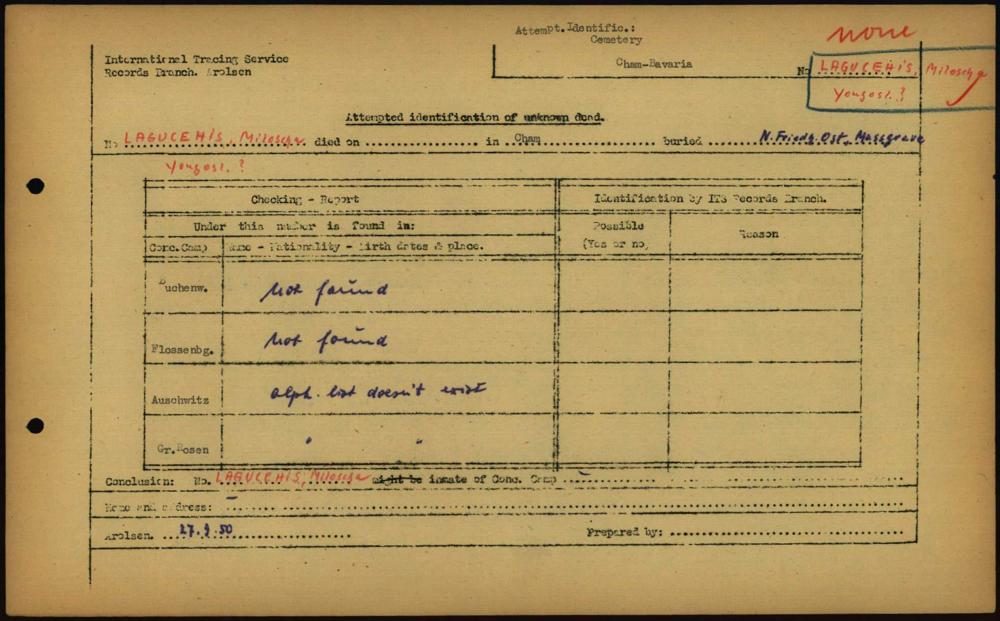 Attempt. Identific.:
Cemetery
none
International Tracing Service
Records Branch. Arolsen
Cham-Bavaria
No LAGUCEHIS, Miloscha
Yougosl. ?
Attempted identification of unknown dead.
No LAGUCEHIS, Miloscha died on .................... in .Cham.................... buried ........ N. Friedh. Ost, Massgrave
Yougosl. ?
Checking - Report
Identification by ITS Records Branch.
Under this number is found in:
Possible
(Yes or no)
Reason
Conc.Camp
Name - Nationality - Birth dates & place.
Buchenw.
not found
Flossenbg.
not found
Auschwitz
alph. list doesn't exist
Gr.Rosen
" "
Conclusion: No. LAGUCEHIS, Miloscha might be inmate of Conc. Camp .. - ....................
Name and address: - ....................
Arolsen. ...27.9.50....................
Prepared by: ....................